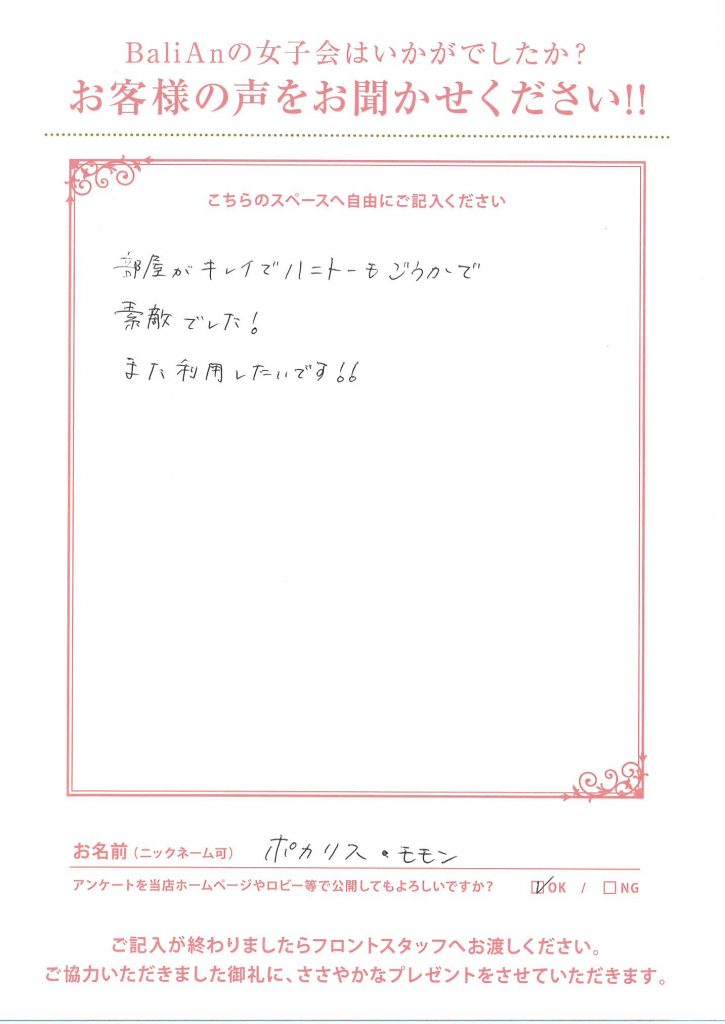 BaliAnの女子会はいかがでしたか?
お客様の声をお聞かせください!!
こちらのスペースへ自由にご記入ください
部屋がキレイでハニトーもごうかで
素敵でした!
また利用したいです!!
お名前(ニックネーム可) ポカリス・モモン
アンケートを当店ホームページやロビー等で公開してもよろしいですか? OK / NG
ご記入が終わりましたらフロントスタッフへお渡しください。
ご協力いただきました御礼に、ささやかなプレゼントをさせていただきます。